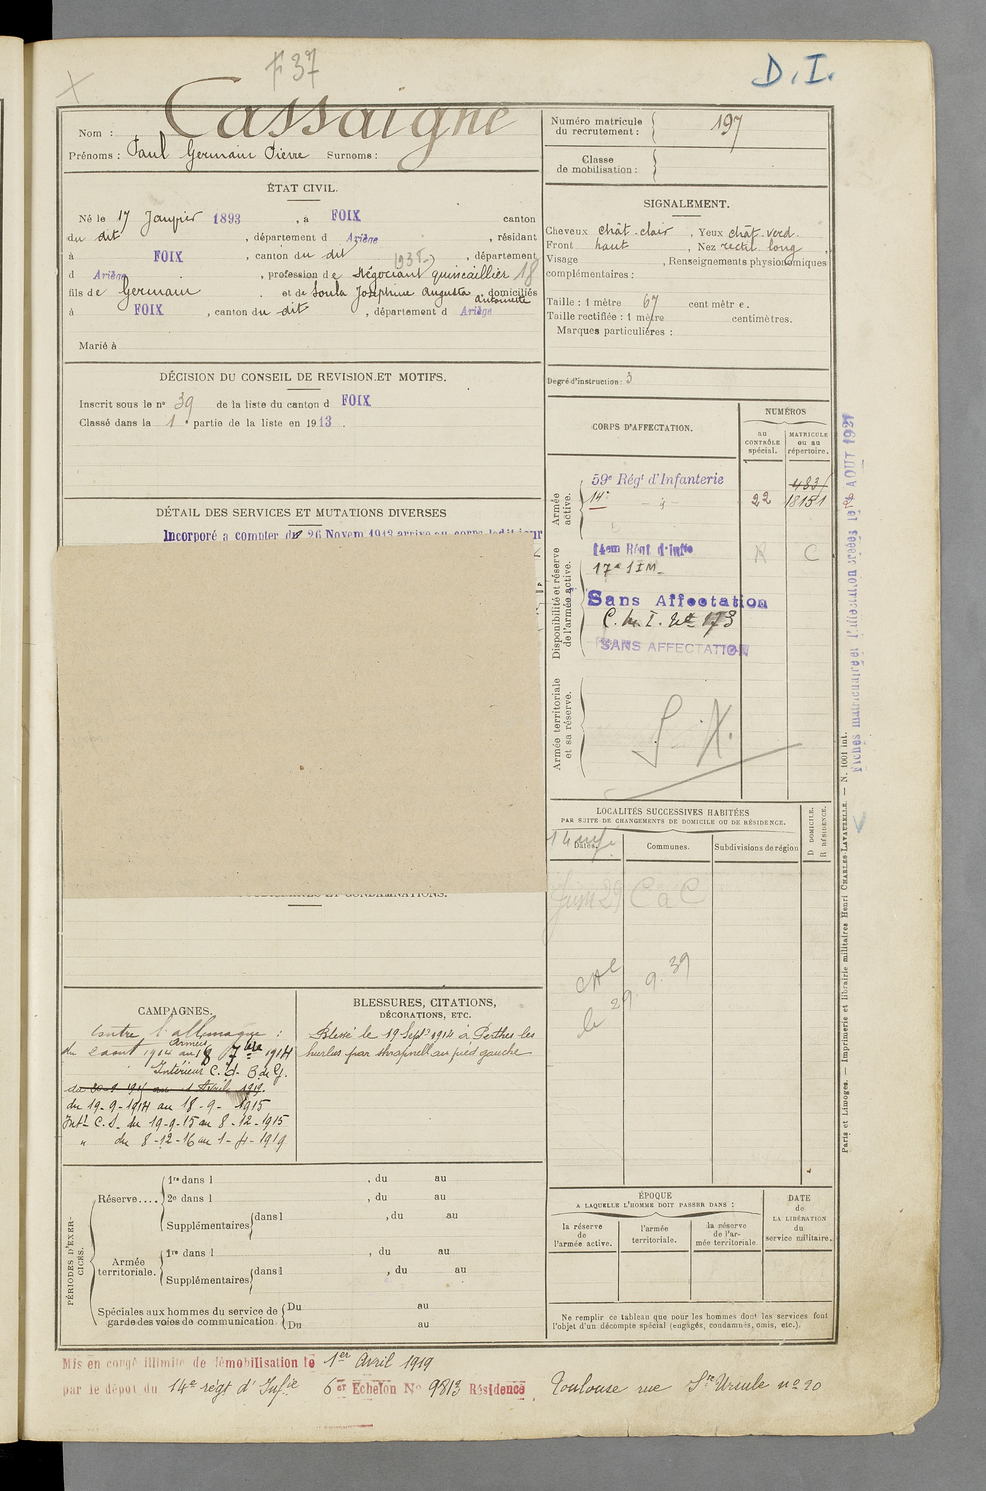 F 37
D. I.
Nom : Cassaigne
Prénoms : Paul Germain Pierre Surnoms :
Numéro matricule du recrutement : 197
Classe de mobilisation :
ÉTAT CIVIL.
Né le 17 Janvier 1893, à FOIX canton
du dit, département d Ariège, résidant
à FOIX, canton du dit, département
d Ariège, profession de Négociant quincaillier 18
fils de Germain et de Soula Joséphine Augusta Antoinette domiciliés
à FOIX, canton du dit, département d Ariège
Marié à
SIGNALEMENT.
Cheveux chât. clair, Yeux chât. verd.
Front haut, Nez rectil. long,
Visage , Renseignements physionomiques
complémentaires :
Taille : 1 mètre 67 centimètre.
Taille rectifiée : 1 mètre centimètres.
Marques particulières :
Degré d'instruction : 3
DÉCISION DU CONSEIL DE REVISION ET MOTIFS.
Inscrit sous le n° 39 de la liste du canton d FOIX
Classé dans la 1e partie de la liste en 1913.
DÉTAIL DES SERVICES ET MUTATIONS DIVERSES
Incorporé à compter du 26 Novem 1913 arrivé au corps ledit jour
CORPS D'AFFECTATION.
NUMÉROS
au CONTRÔLE spécial.
MATRICULE ou au répertoire.
Armée active.
59e Régt d'Infanterie 4831
14e 22 18151
Disponibilité et réserve de l'armée active.
14em Régt d'Inftie
17e SIM
Sans Affectation
C. M. I. 173
SANS AFFECTATION
Armée territoriale et sa réserve.
S. X.
Fiches matricule et d'affectation créées le AOUT 1921
LOCALITÉS SUCCESSIVES HABITÉES
PAR SUITE DE CHANGEMENTS DE DOMICILE OU DE RÉSIDENCE.
Dates.
Communes.
Subdivisions de région
D DOMICILE.
R RÉSIDENCE.
Juin 29 C a C
le 29. 9. 39
CAMPAGNES.
Contre l'allemagne :
Armées
du 2 août 1914 au 18 7bre 1914
Intérieur C. d. B. de G.
du 19-9-1914 au 18-9-1915
Intr C. S. du 19-9-15 au 8-12-1915
" du 8-12-16 au 1-4-1919
BLESSURES, CITATIONS,
DÉCORATIONS, ETC.
Blessé le 19 Sept 1914 à Perthes les
hurlus par shrapnell au pied gauche
PÉRIODES D'EXERCICES.
Réserve....
1re dans l , du au
2e dans l , du au
Supplémentaires dans l , du au
Armée territoriale.
1re dans l , du au
Supplémentaires dans l , du au
Spéciales aux hommes du service de garde des voies de communication
Du au
Du au
ÉPOQUE
A LAQUELLE L'HOMME DOIT PASSER DANS :
la réserve de l'armée active.
l'armée territoriale.
la réserve de l'armée territoriale
DATE de LA LIBÉRATION du service militaire.
Ne remplir ce tableau que pour les hommes dont les services font
l'objet d'un décompte spécial (engagés, condamnés, omis, etc.).
Paris et Limoges. — Imprimerie et librairie militaires Henri CHARLES-LAVAUZELLE. — N. 1001 int.
Mis en congé illimité de démobilisation le 1er Avril 1919
par le dépôt du 14e régt d'Infie 6er Echelon N° 9813 Résidence Toulouse rue Ste Ursule n° 20